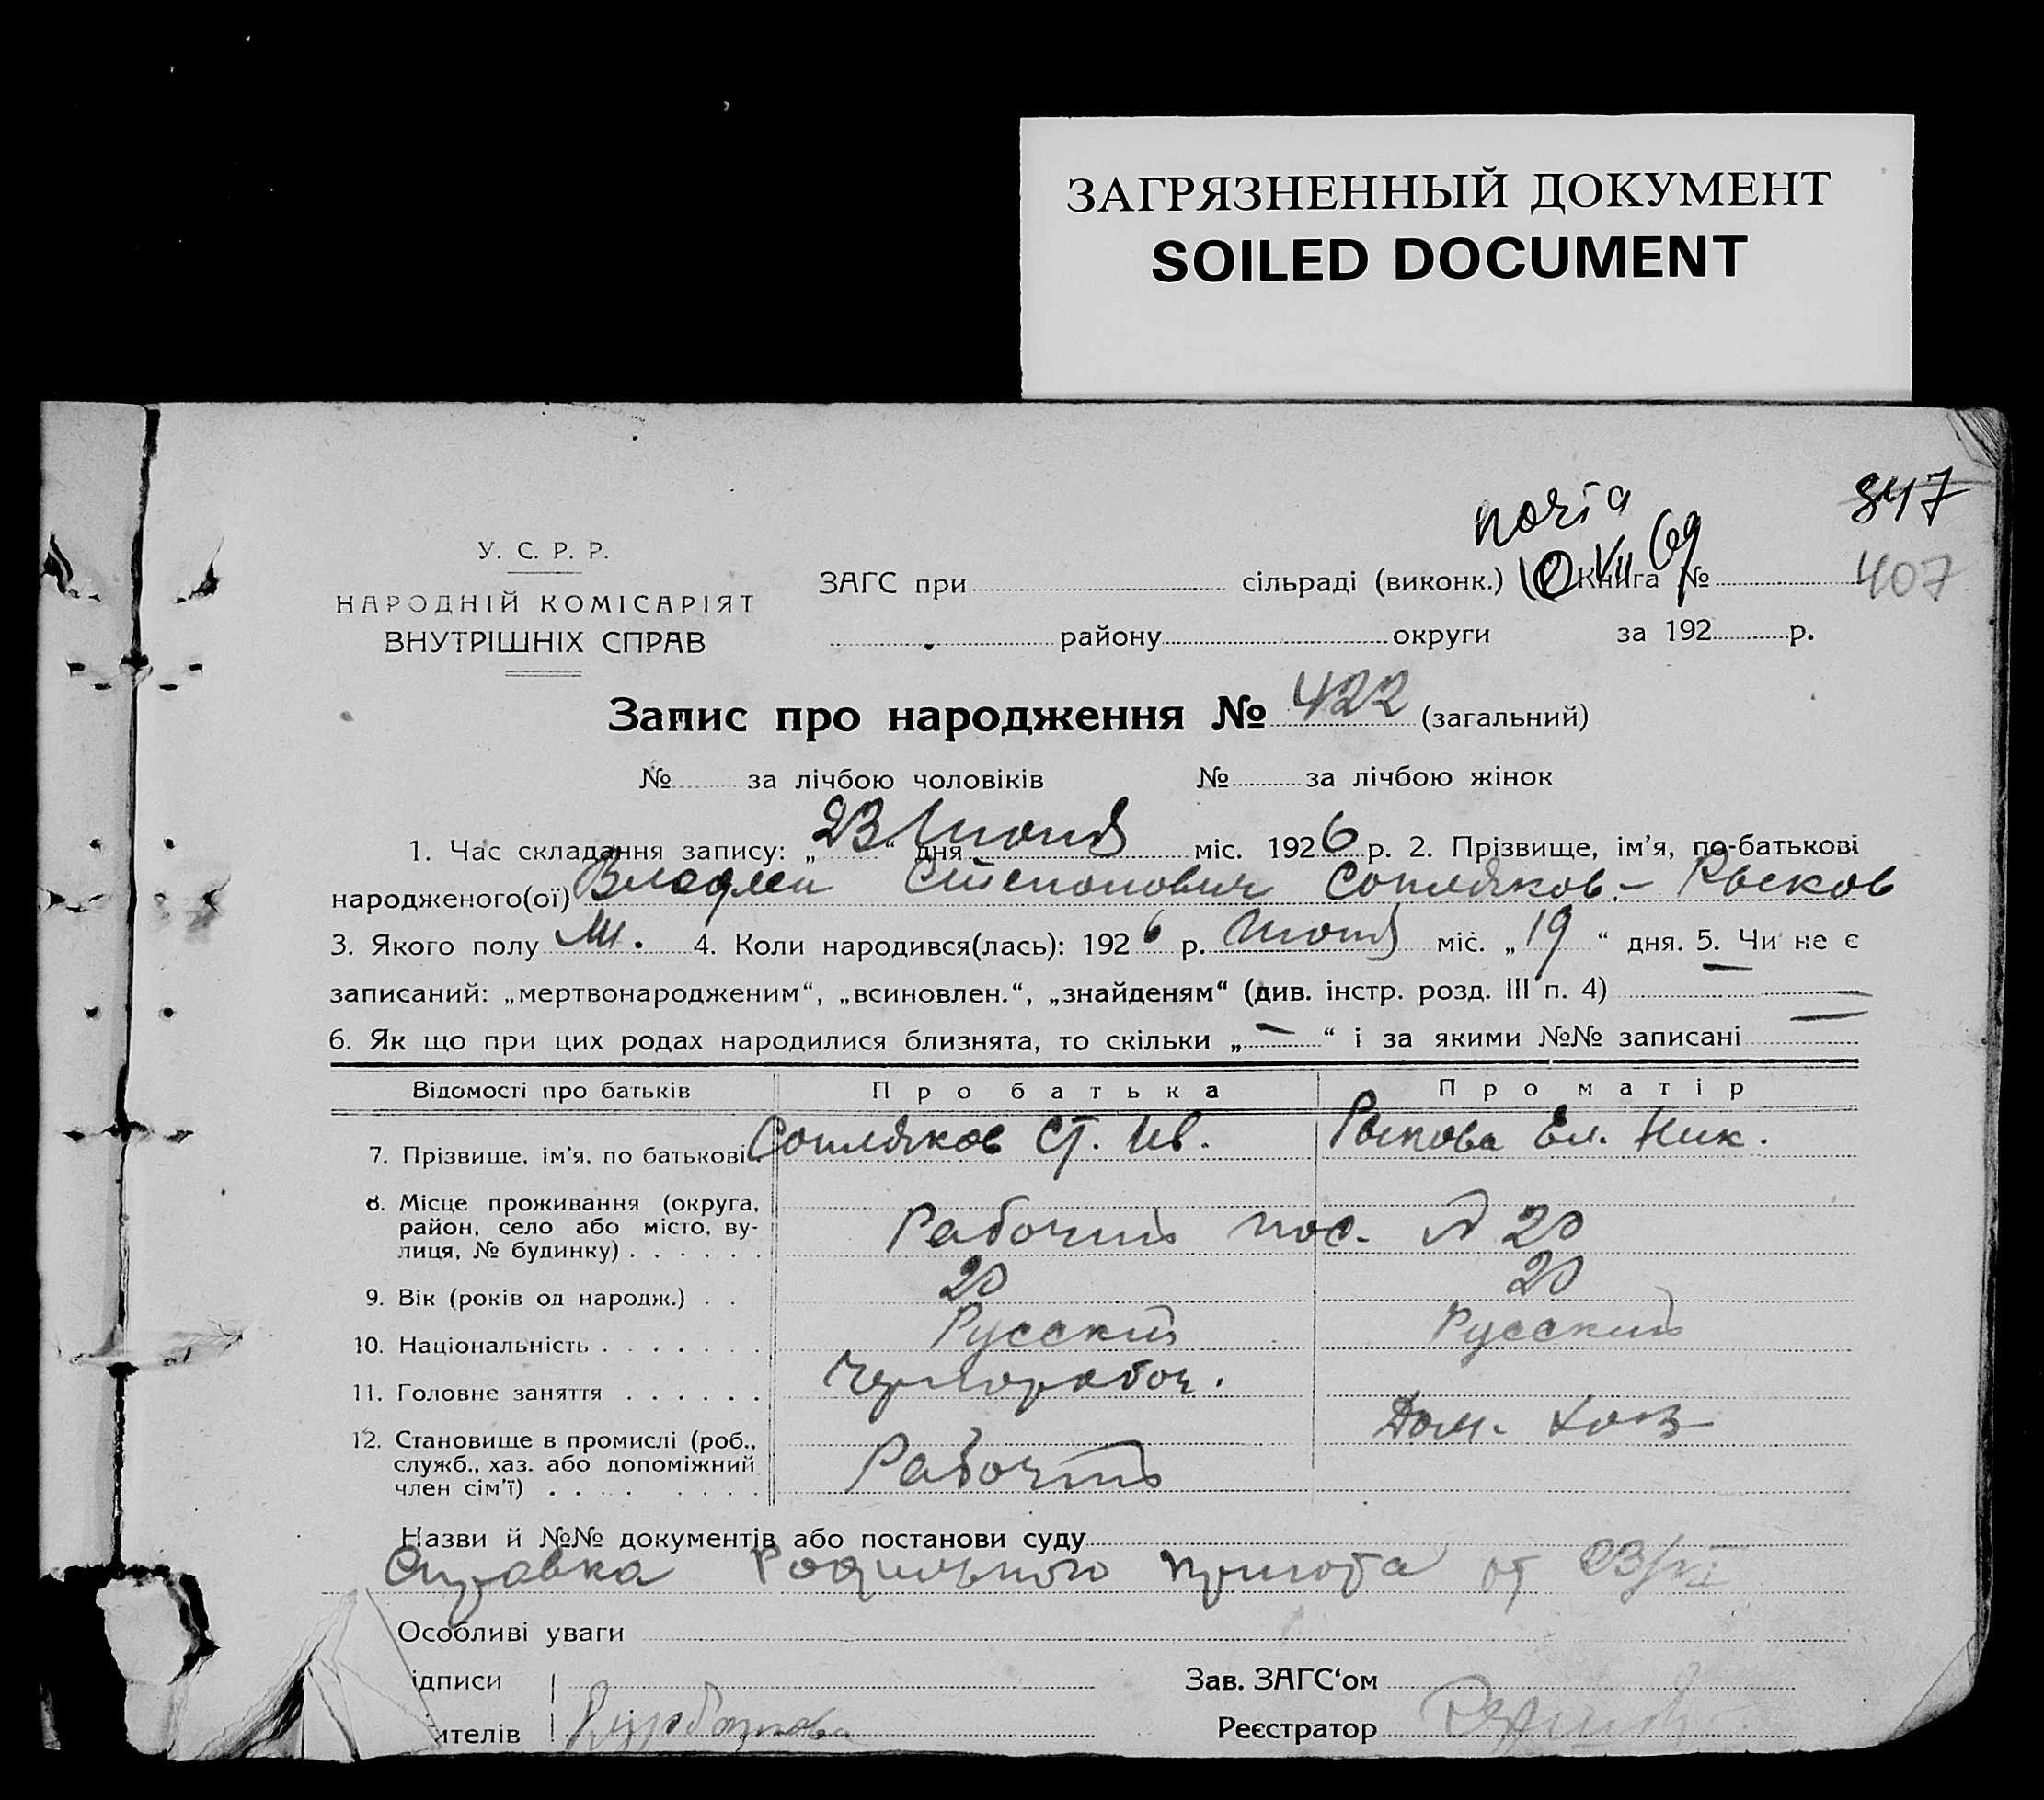 ЗАГРЯЗНЕННЫЙ ДОКУМЕНТ
SOILED DOCUMENT
копія 347
10 VII 69
407
У. С. Р. Р.
НАРОДНІЙ КОМІСАРІЯТ
ВНУТРІШНІХ СПРАВ
ЗАГС при сільраді (виконк.) Книга №
району округи за 192 р.
Запис про народження № 422 (загальний)
№ за лічбою чоловіків № за лічбою жінок
1. Час складання запису: „23“ дня Июня міс. 1926 р. 2. Прізвище, ім'я, по-батькові
народженого(ої) Владлен Степанович Сопляков - Рысков
3. Якого полу М. 4. Коли народився(лась): 1926 р. Июня міс. „19“ дня. 5. Чи не є
записаний: „мертвонародженим“, „всиновлен.“, „знайденям“ (див. інстр. розд. III п. 4) —
6. Як що при цих родах народилися близнята, то скільки „—“ і за якими №№ записані —
Відомості про батьків Про батька Про матір
7. Прізвище, ім'я, по батькові Сопляков Ст. Ив. Ел. Ник.
8. Місце проживання (округа,
район, село або місто, ву-
лиця, № будинку) . . . . . . Рабочий пос. № 20
9. Вік (років од народж.) . . 20 20
10. Національність . . . . . . . Русский Русский
11. Головне заняття . . . . . . Чернорабоч.
12. Становище в промислі (роб.,
служб., хаз. або допоміжний
член сім'ї) . . . . . . . . Рабочий Дом. хоз
Назви й №№ документів або постанови суду
Справка Родильного приюта от 23/VI
Особливі уваги
ідписи Зав. ЗАГС'ом
ителів Реєстратор